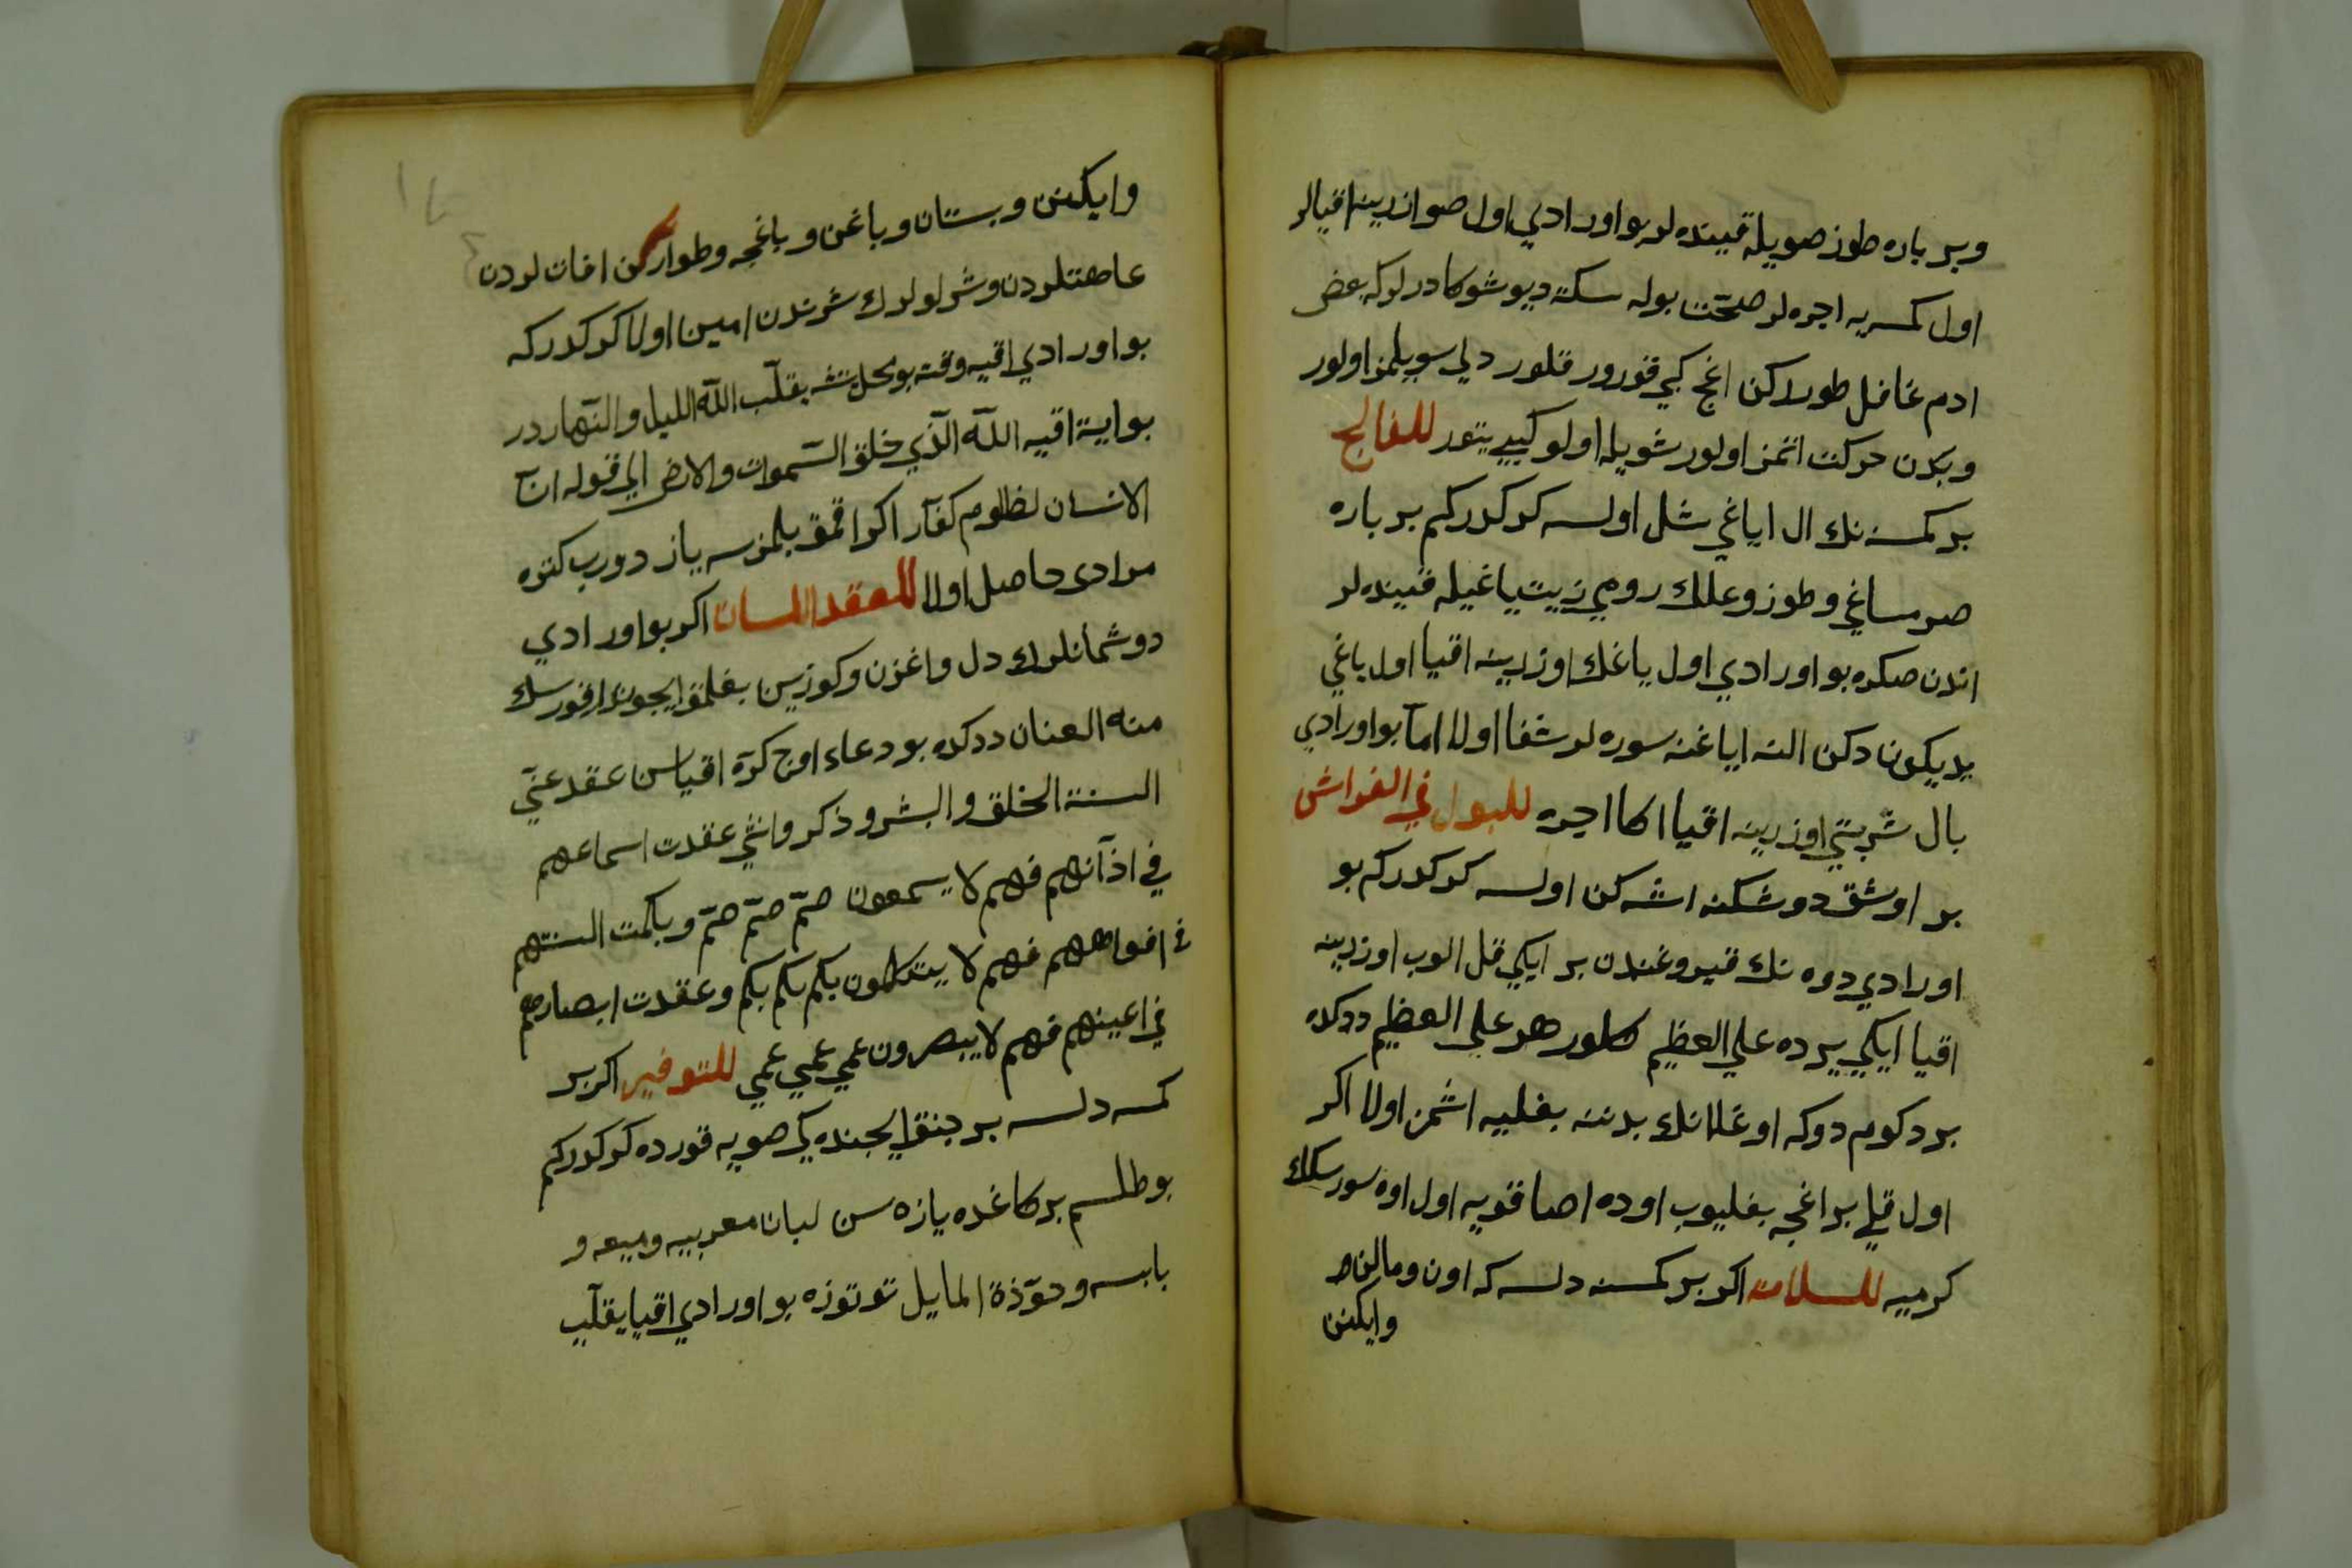 وبر باره طوز صويله قينده لر بو اورادي اول صو ازرينه اقيالر
اول كمسيه اجره لر صحت بوله سكته ديو شوكا درلر كه بعض
ادم غافل طورركن اغج كبي قورور قلور دلي سويلمز اولور
وبدن حركت اتمز اولور شويله اولو كبي يتور للفالج
بر كمسنه نك ال اياغي شل اولسه كركدركم بر باره
صرمساغي وطوز وعلك رومي زيت ياغيله قينده لر
اندن صكره بو اورادي اول ياغك اوزرينه اقيا اول ياغي
يديكون دكن النه اياغنه سوره لر شفا اولا اما بو اورادي
بال شربتي اوزرينه اقيا اكا اجره للبول في الفراش
بر اوشق دوشكنه اشه كن اولسه كركدركم بو
اورادي دوه نك قيروغندن بر ايكي قل الوب اوزرينه
اقيا ايكي يرده علي العظيم كلور هر علي العظيم ددكده
بر دكوم دوكه اوغلانك بدننه بغليه اشمز اولا اكر
اول قلي بر اغجه بغليوب اوده اصا قويه اول اوه سورسكك
كرميه للسلامة اكر بر كمسنه دلسه كه اون ومالن
وايكنن
وايكنن وبستان وباغن وباغچه وطوارلرن افات لردن
عاهتلردن وشرلولرك شرندن امين اولا كركدركه
بو اورادي اقيه وقته بو محل يتشه يقلّب اللّه الليل والنّهاردر
بو اية اقيه اللّه الّذي خلق السّموات والارض الي قوله انّ
الانسان لظلوم كفّار اكر اقمق بلمزسه يازدورب كتوره
مرادي حاصل اولا للعقد اللسان اكر بو اورادي
دوشمانلرك دل واغزن وكوزين بغلمق ايچون اقورسك
منه العنان ددكده بو دعاء اوج كرّه اقياسن عقد عنّي
السنة الخلق والبشر وذكر وانثي عقدت اسماعهم
في اذآنهم فهم لا يسمعون صمّ صمّ صمّ وبكمت السنتهم
في افواههم فهم لا يتكلمون بكم بكم بكم وعقدت ابصارهم
في اعينهم فهم لا يبصرون عمي عمي عمي للتوفير اكر بر
كمسه دلسه بر چنق ايچنده كي صويه قورده كركدركم
بو طلسم بر كاغده يازه سن لبان معربيه وميعه و
يابسه وحوّذة المايل توتوزه بو اورادي اقيا يقلّب